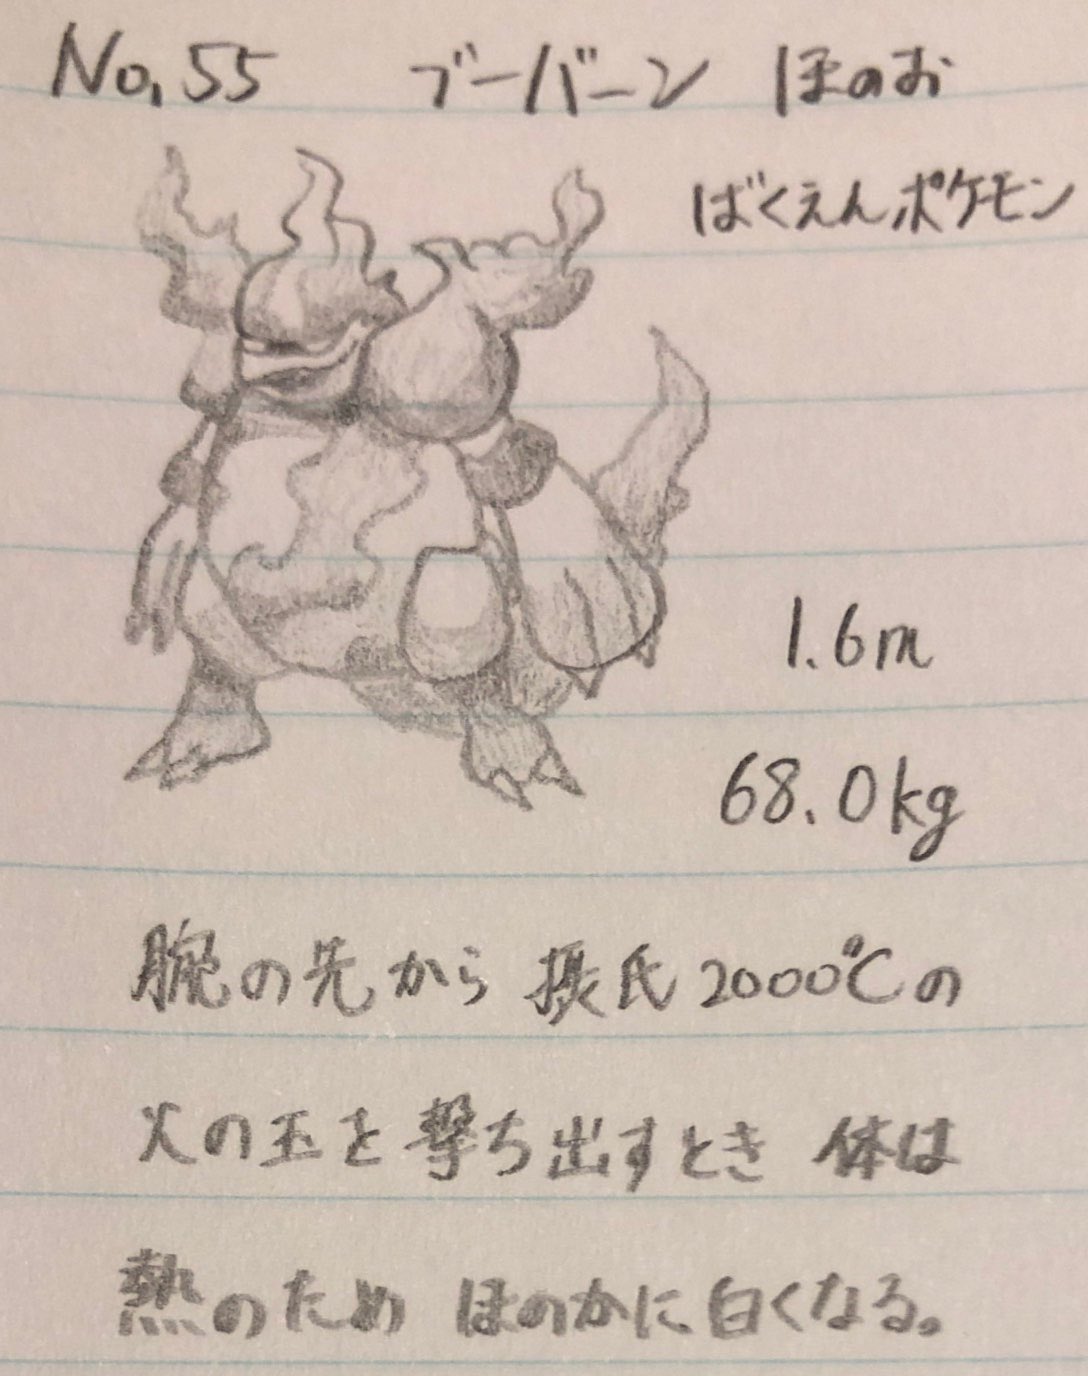 No.55 ブーバーン ほのお
ばくえんポケモン
1.6m
68.0kg
腕の先から 摂氏2000℃の
火の玉を撃ち出すとき 体は
熱のため ほのかに白くなる。